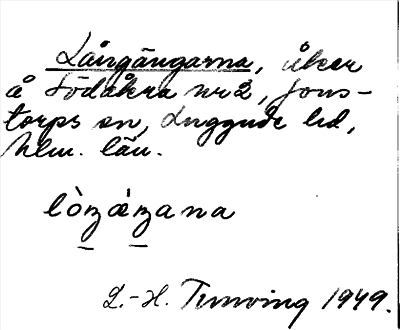 Långängarna, åker
å Södåkra nr 2, Jons-
torps sn, Luggude hd,
Mlm. län.
lòŋæŋana
L.-H. Tunving 1949.